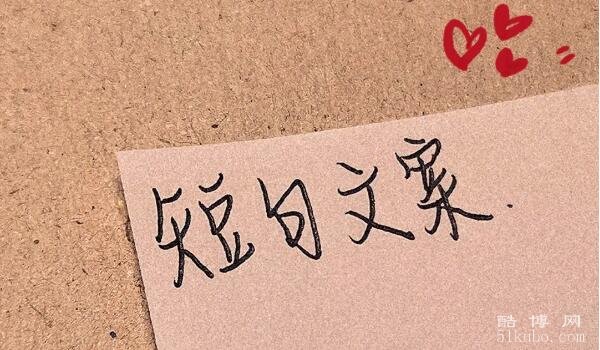 短句文案.
酷博网
51kubo.com